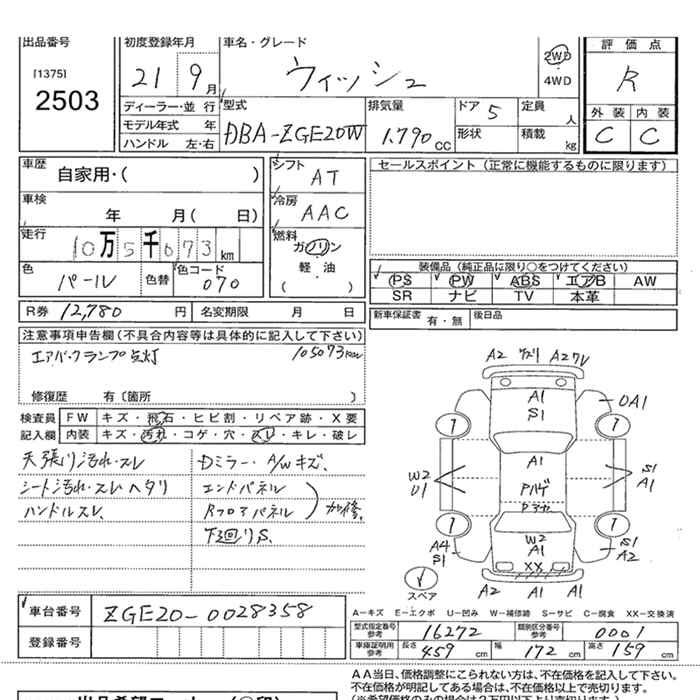 出品番号 初度登録年月 車名・グレード 評価点
[1375] 2503
21 9月 ウィッシュ 2WD ・ 4WD R
ディーラー・並行 型式 排気量 ドア 5 定員 人 外装 内装
モデル年式 年 DBA-ZGE20W 1.790 CC 形状 積載 kg C C
ハンドル 左・右
車歴 自家用・( ) シフト AT セールスポイント (正常に機能するものに限ります)
車検 年 月( 日) 冷房 AAC
走行 10万5千073km 燃料 ガソリン ・ 軽油 ・ ( )
色 パール 色替 色コード 070
装備品 (純正品に限り○をつけてください)
PS PW ABS エアB AW
SR ナビ TV 本革
R券 12,780 円 名変期限 月 日 新車保証書 有・無 後日品
注意事項申告欄(不具合内容等は具体的に記入して下さい)
エアバックランプ点灯 105073km
修復歴 有〔箇所 〕
検査員 FW キズ・飛石・ヒビ割・リペア跡・X要
記入欄 内装 キズ・汚れ・コゲ・穴・スレ・キレ・破レ
天張り汚れ・スレ Dミラー・A/Wキズ.
シート汚れ・スレ・ヘタリ エンドパネル
ハンドルスレ. Rフロアパネル 加修.
下廻りS.
A2 A2
A1
S1
A1
1 1
A1
W2
U1
S1
A1
1 1
W2
A1
XX
A4
S1
S1
A2
スペア
A2 A1 A1
車台番号 ZGE20-0028358
登録番号
A-キズ E-エクボ U-凹み W-補修跡 S-サビ C-腐食 XX-交換済
型式指定番号 参考 16272 類別区分番号 参考 0001
車庫証明用 参考 長さ 459 cm 幅 172 cm 高さ 159 cm
AA当日、価格調整にこられない方は、不在価格を記入して下さい。
不在価格が明記してある場合は、不在価格以上で売切ります。